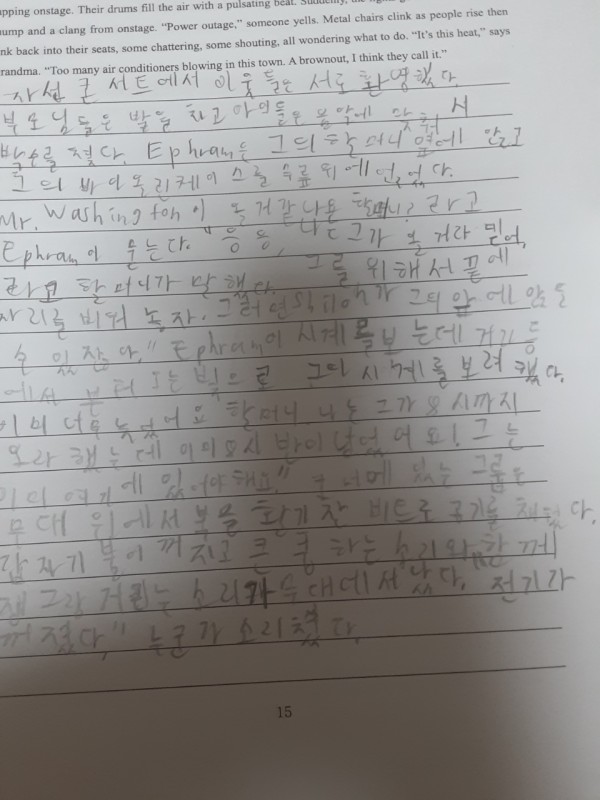 onstage. Their drums fill the air with a pulsating beat. Suddenly, the
and a clang from onstage. “Power outage,” someone yells. Metal chairs clink as people rise then
back into their seats, some chattering, some shouting, all wondering what to do. “It’s this heat,” says
“Too many air conditioners blowing in this town. A brownout, I think they call it.”
콘서트에서 이웃들은 서로 환영했다.
부모님들은 발을 차고 아이들은 음악에 맞춰서
박수를 쳤다. Ephram은 그의 할머니 옆에 앉고
그의 바이올린케이스를 무릎 위에 얹었다.
Mr. Washington이 올 거 같나요 할머니? 라고
Ephram이 묻는다. "응 응, 나는 그가 올 거라 믿어,
라고 할머니가 말했다. 그를 위해서 끝에
자리를 비워 놓자. 그가 그의 앞에 앉을
수 있잖다." Ephram이 시계를 보는데
에서 부터 오는 빛으로 그의 시계를 보려 했다.
이미 너무 늦었어요 할머니. 나는 그가 8시까지
오라 했는데 이미 8시 반이 넘었어요! 그는
여기에 있어야해요." 있는 그룹은
무대 위에서 북을 활기찬 비트로 공기를 채웠다.
갑자기 불이 꺼지고 큰 쿵 하는 소리와 함께
쟁그랑 거리는 소리가 무대에서 났다. 전기가
꺼졌다," 누군가 소리쳤다.
15